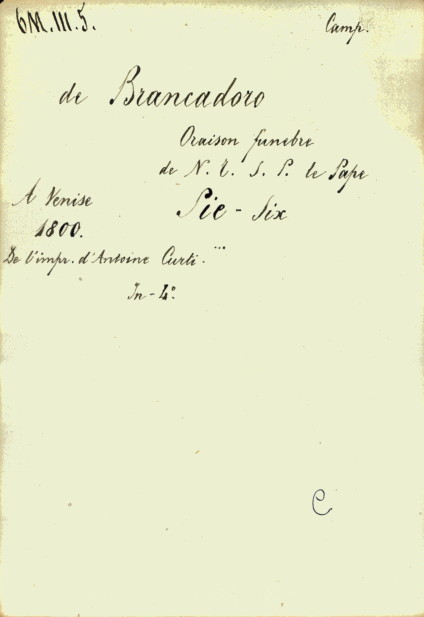 6M.III.5.
Camp.
de Brancadoro
Oraison funebre
de N. T. S. P. le Pape
Pie-Six
A Venise
1800.
De l'impr. d'Antoine Curti. ...
In-4°.
C